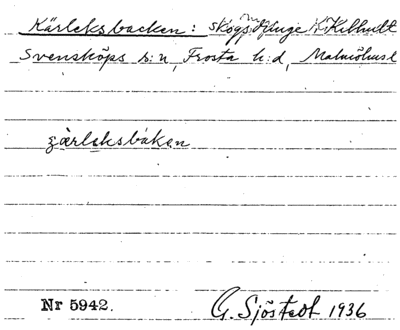 Kärleksbacken: skogsdunge i Kilhult
Svensköps s:n, Frosta h:d, Malmöhus l
Nr 5942. G. Sjöstedt 1936